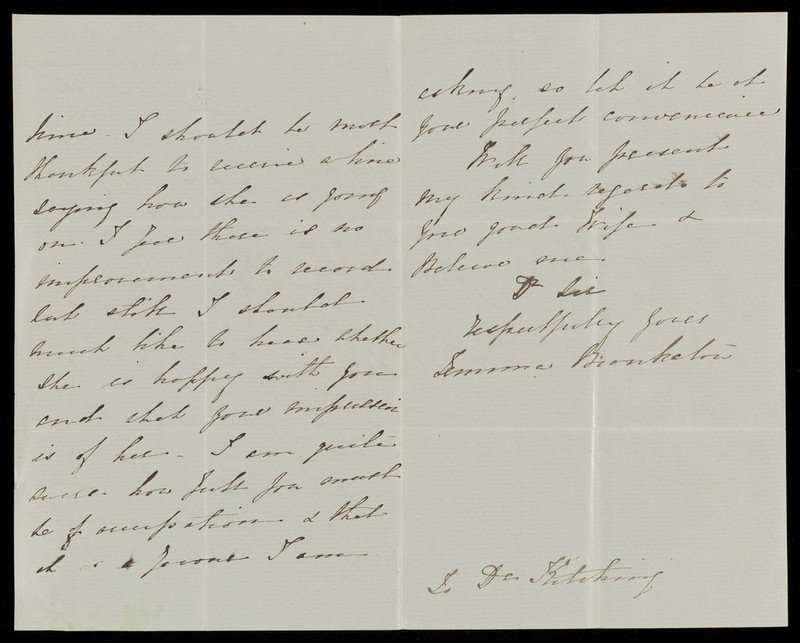 time - I should be most
thankful to receive a line
saying how she is going
on. I fear there is no
improvement to record
but still I should
much like to hear whether
she is happy with you
and what your impression
is of her - I am quite
aware how full you must
be of occupation & that
it is a favour I am
asking, so let it be at
your perfect convenience
Will you present
my kind regards to
your good Wife &
Believe me
Dr Sir
respectfully yours
Jemima
To Dr Kitching